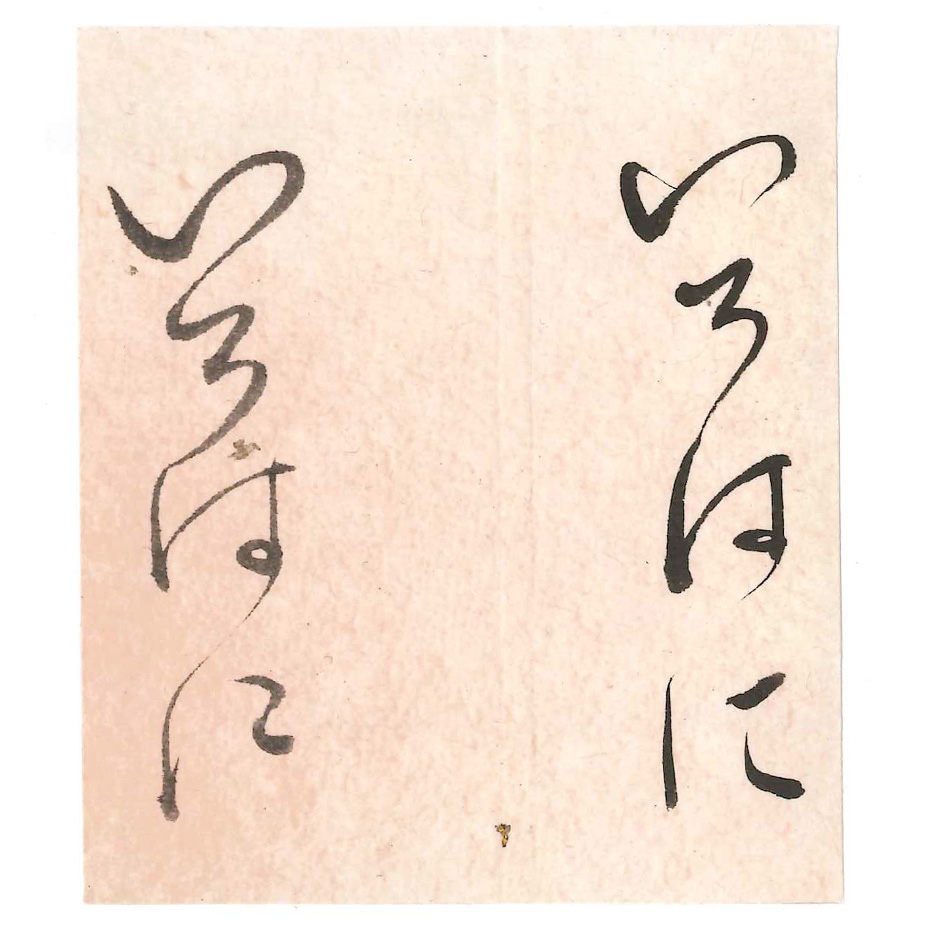 いろはに
いろはに